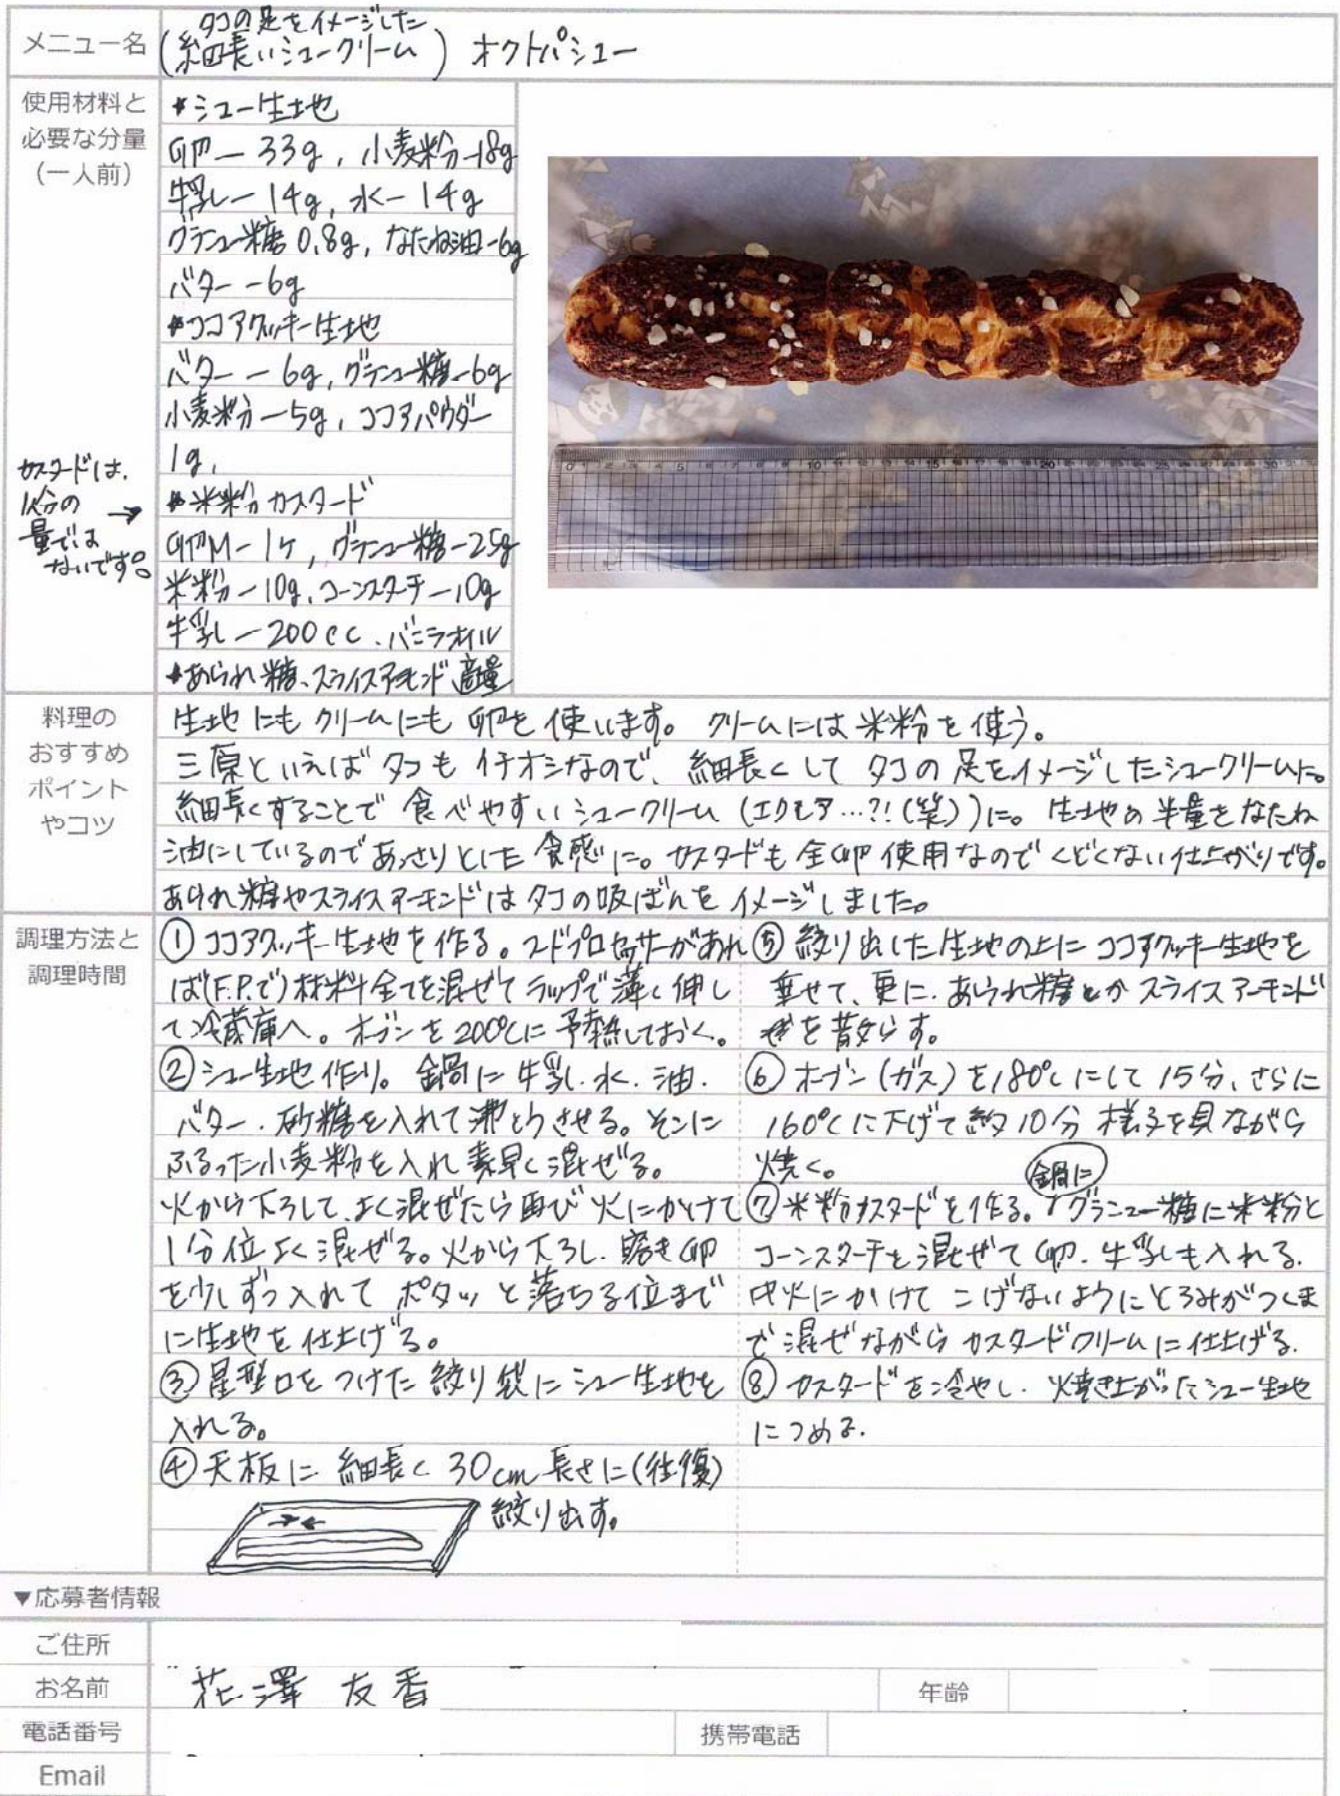 メニュー名
タコの足をイメージした
(細長いシュークリーム) オクトパシュー
使用材料と
必要な分量
(一人前)
*シュー生地
卵ー33g, 小麦粉ー18g
牛乳ー14g, 水ー14g
グラニュー糖 0.8g, なたね油ー6g
バターー6g
*ココアクッキー生地
バターー6g, グラニュー糖ー6g
小麦粉ー5g, ココアパウダー
1g,
*米粉カスタード
卵Mー1ケ, グラニュー糖ー25g
米粉ー10g, コーンスターチー10g
牛乳ー200cc、バニラオイル
*あられ糖、スライスアーモンド 適量
カスタードは、
1人分の
量では
ないです。
→
料理の
おすすめ
ポイント
やコツ
生地にもクリームにも卵を使います。クリームには米粉を使う。
三原といえばタコもイチオシなので、細長くしてタコの足をイメージしたシュークリームに。
細長くすることで食べやすいシュークリーム(エクレア…?!(笑))に。生地の半量をなたね
油にしているのであっさりとした食感に。カスタードも全卵使用なのでくどくない仕上がりです。
あられ糖やスライスアーモンドはタコの吸ばんをイメージしました。
調理方法と
調理時間
①ココアクッキー生地を作る。フードプロセッサーがあれ
ば(F.P.で)材料全てを混ぜてラップで薄く伸し
て冷蔵庫へ。オーブンを200℃に予熱しておく。
②シュー生地作り。鍋に牛乳.水.油.
バター.砂糖を入れて沸とうさせる。そこに
ふるった小麦粉を入れ素早く混ぜる。
火から下ろして、よく混ぜたら再び火にかけて
1分位よく混ぜる。火から下ろし.溶き卵
を少しずつ入れてポタッと落ちる位まで
に生地を仕上げる。
③星型口をつけた絞り袋にシュー生地を
入れる。
④天板に細長く30cm長さに(往復)
絞り出す。
⑤絞り出した生地の上にココアクッキー生地を
乗せて、更に.あられ糖とかスライスアーモンド
を散らす。
⑥オーブン(ガス)を180℃にして15分、さらに
160℃に下げて約10分様子を見ながら
焼く。
⑦米粉カスタードを作る。鍋にグラニュー糖に米粉と
コーンスターチを混ぜて卵.牛乳も入れる.
中火にかけてこげないようにとろみがつくま
で混ぜながらカスタードクリームに仕上げる.
⑧カスタードを冷やし.焼き上がったシュー生地
につめる.
▼応募者情報
ご住所
お名前
花澤 友香
年齢
電話番号
携帯電話
Email